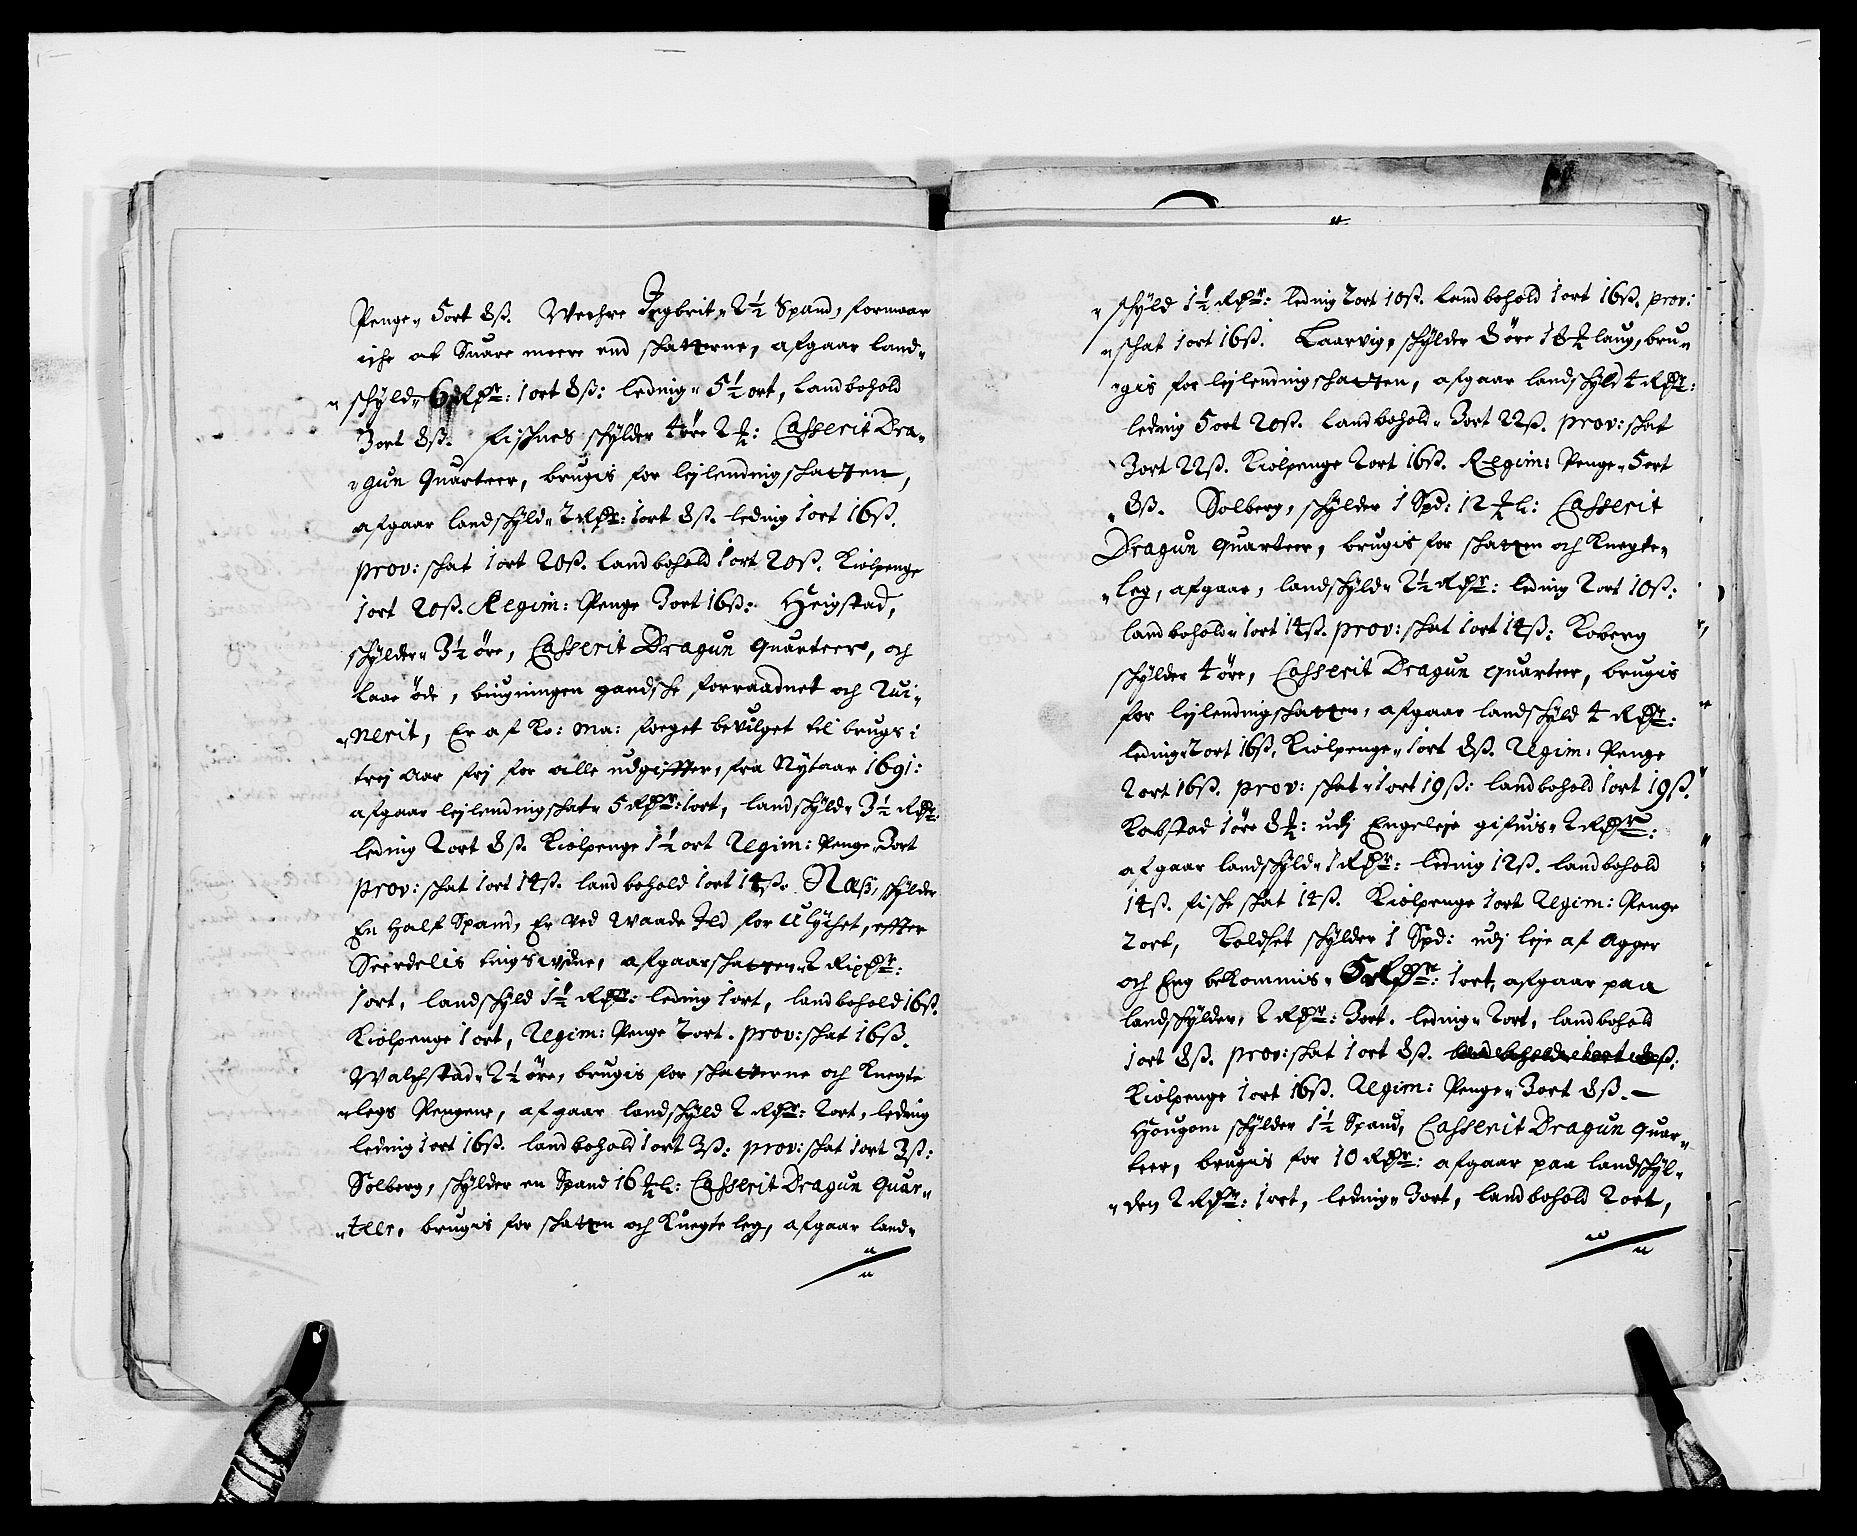 Penge„ 5 ort 8ß. Wechre Ingbrit„ 2½ Spand, formaar
iche at Suare meere end schatterne, afgaar land„
„schyld„ 6 Rdr: 1 ort 8ß: leding„ 5½ ort, landbohold
3 ort 8ß. Fischnes schylder 4 öre 2 : Casserit Dra„
„gun Quarteer, brugis for leylending schatten,
afgaar landschyld„ 2 Rdr: 1 ort 8ß. leding 1 ort 16ß.
prov: schat 1 ort 20ß. landbohold 1 ort 20ß. Kiolpenge
1 ort 20ß. Regim: Penge 3 ort 16ß: Heigstad,
schylder„ 3½ öre, Casserit Dragun Quarteer, och
laae öde, biugningen gandske forraadnet och Rui„
„nerit, Er af Ko: Ma: forget bevilget til brugs i
trej Aar frj for alle udgiffter, fra Nytaar 1691:
afgaar leylending schat„ 5 Rdr: 1 ort, landschyld„ 3½ Rdr:
leding 2 ort 8ß. Kiolpenge 1½ ort Regim: Penge„ 3 ort
prov: schat 1 ort 14ß. landbohold 1 ort 14ß. Næß, schylder
En Half Spand, Er ved Waade Ild for Ulychet, effter
Seerdelis tingswidne, afgaar schatten„ 2 Rixdr:
1 ort, landschyld 1½ Rdr: leding 1 ort, landbohold 16ß.
Kiolpenge 1 ort, Regim: Penge 2 ort. prov: schat 16ß.
Walchstad„ 2½ öre, brugis for schatterne och Knegte
„legs Pengene, afgaar landschyld 2 Rdr: 2 ort, leding
leding 1 ort 16ß. landbohold 1 ort 3ß: prov: schat 1 ort 3ß:
Solberg, schylder en Spand 16 : Casserit Dragun Quar„
„teer, brugis for schatten och Knegte leg, afgaar land„
„schyld 1½ Rdr: leding 2 ort 10ß. landbohold 1 ort 16ß. prov:
„schat 1 ort 16ß. Laarvig, schylder 8 öre 18 laug, bru„
„gis for leylending schatten, afgaar landschyld 4 Rdr:
leding 5 ort 20ß. landbohold„ 3 ort 22ß. prov: schat
3 ort 22ß. Kiolpenge 2 ort 16ß. Regim: Penge„ 5 ort
8ß. Solberg, schylder 1 Spd: 12 : Casserit
Dragun Quarteer, brugis for schatten och Knegte„
„leg, afgaar, landschyld„ 2½ Rdr: leding 2 ort 10ß:
landbohold„ 1 ort 14ß. prov: schat 1 ort 14ß: Koberg
schylder 4 öre, Casserit Dragun Quarteer, brugis
for leylending schatten, afgaar landschyld 4 Rdr:
leding„ 2 ort 16ß, Kiolpenge„ 1 ort 8ß. Regim: Penge
2 ort 16ß. prov: schat„ 1 ort 19ß: landbohold 1 ort 19ß.
Kobstad 1 öre 8 : udj Engeleje gifuis„ 2 Rdr:
afgaar landschyld„ 1 Rdr: leding 12ß. landbohold
14ß. fische schat 14ß. Kiolpenge 1 ort Regim: Penge
2 ort, Koldset schylder 1 Spd: udj leje af Agger
och Eng bekommis„ 5 Rdr: 1 ort, afgaar paa
landschylden, 2 Rdr: 3 ort. leding„ 2 ort, landbohold
1 ort 8ß. prov: schat 1 ort 8ß.
Kiolpenge 1 ort 16ß. Regim: Penge„ 3 ort 8ß. —
Hougom schylder 1½ Spand, Casserit Dragun Quar„
teer, brugis for 10 Rdr: afgaar paa landschyl„
„den 2 Rdr: 1 ort, leding„ 3 ort, landbohold 2 ort,